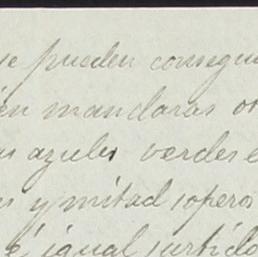 se pueden consegui
en mandaras o
s azules verdes e
s y mitad soperos
é igual surtido